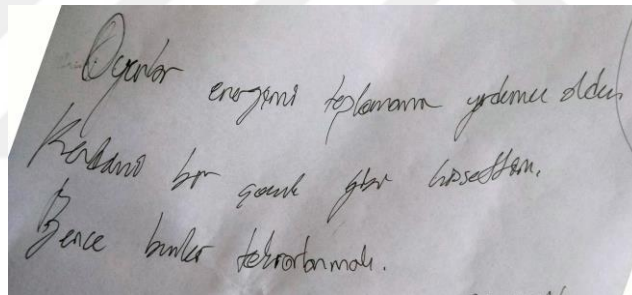 Oyunlar enerjimi toplamama yardımcı oldu.
Kendimi bir çocuk gibi hissettim.
Bence bunlar tekrarlanmalı.